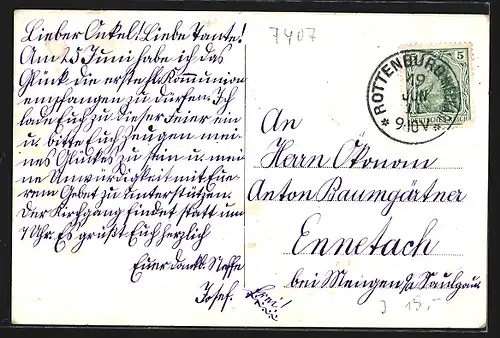 Lieber Onkel! Liebe Tante!
Am 25 Juni habe ich das
Glück die erste hl. Kommunion
empfangen zu dürfen. Ich
lade Euch zu dieser Feier ein
u. bitte Euch Zeugen mei-
nes Glückes zu sein u. mei-
ne Unwürdigkeit mit Eu-
rem Gebet zu unterstützen.
Der Kirchgang findet statt um
7 Uhr. Es grüßt Euch herzlich
Euer dankb. Neffe
Josef.
7407
An
Herrn Ökonom
Anton Baumgärtner
Ennetach
bei Mengen o/a Saulgau
ROTTENBURG
19
JUN
9-10V
5
15.-